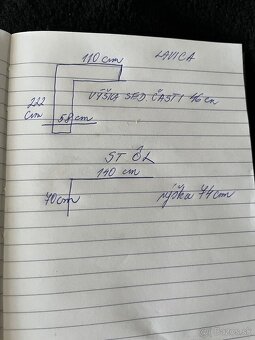 110 cm LAVICA
VÝŠKA SED ČASTI 46 cm
222 cm
58 cm
STÔL
110 cm
70 cm výška 74 cm